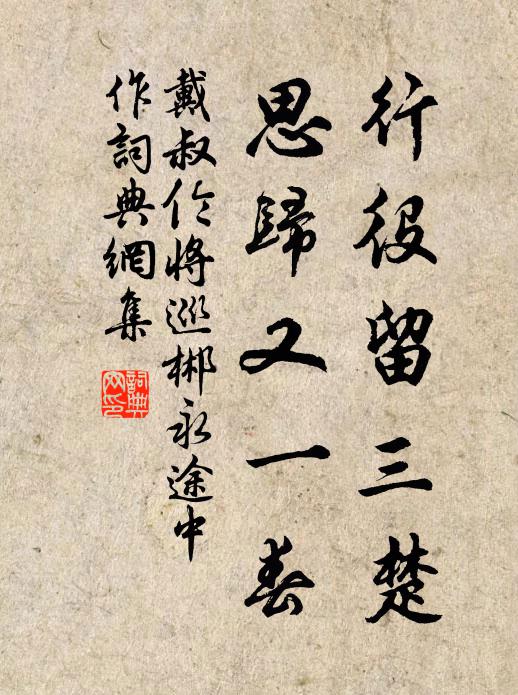 行役留三楚
思歸又一春
戴叔伦將巡郴永途中
作詞典網集
詞典网印